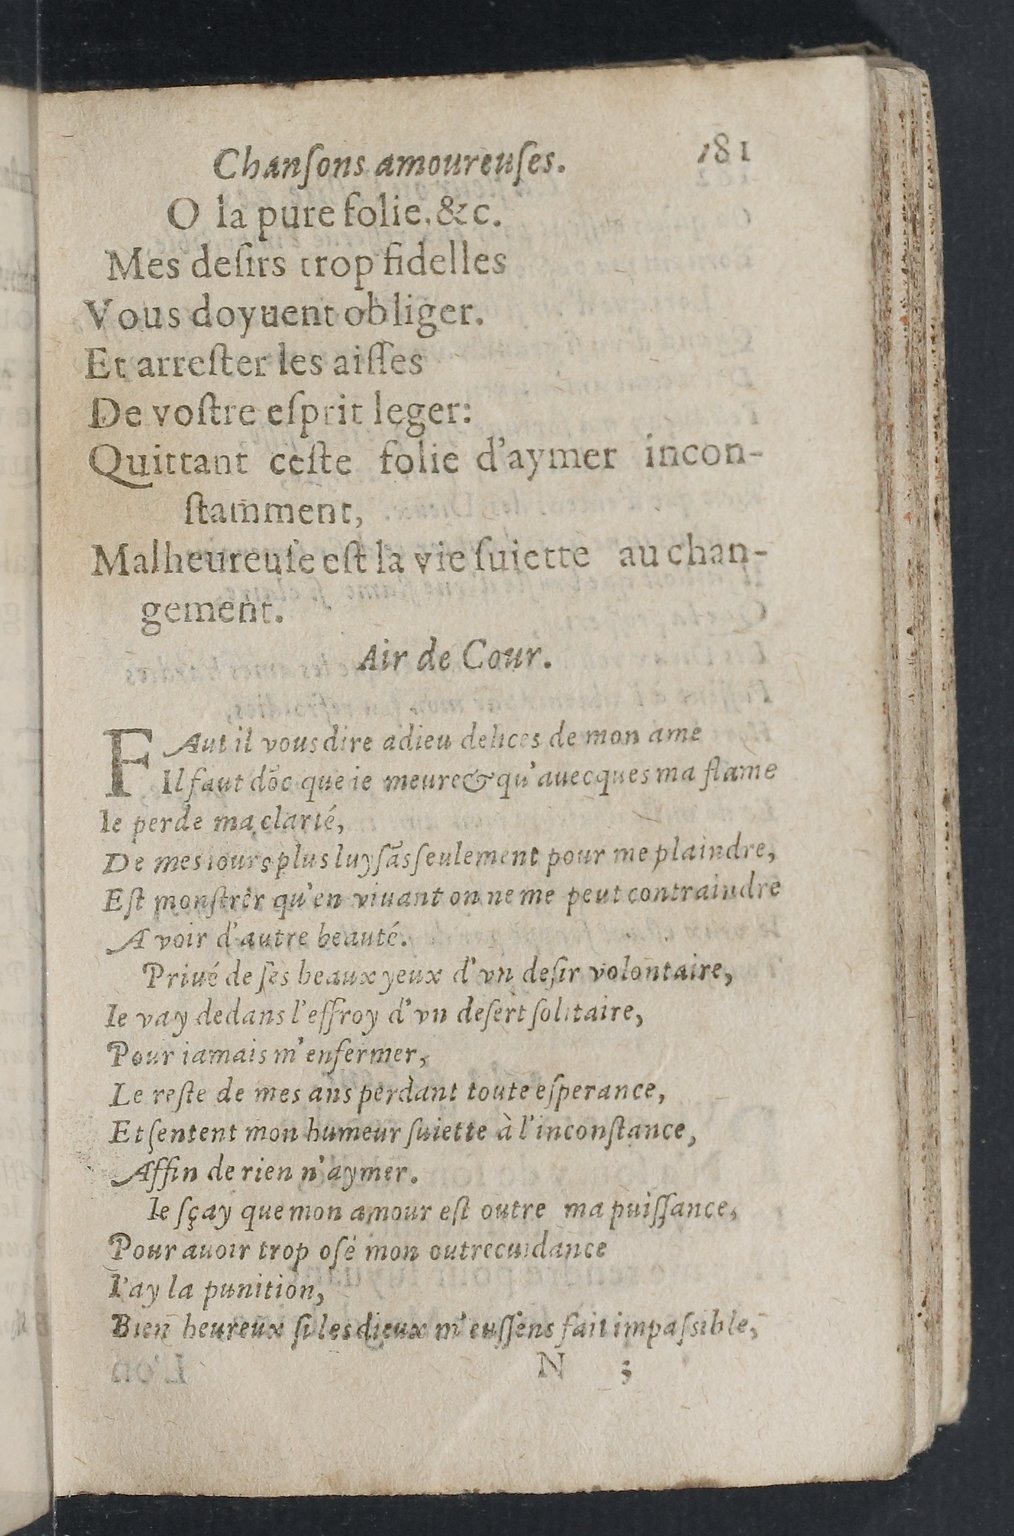 Chanſons amoureuſes. 181
O la pure folie, &c.
Mes deſirs trop fidelles
Vous doyuent obliger.
Et arreſter les aiſſes
De voſtre eſprit leger:
Quittant ceſte folie d'aymer incon-
ſtamment,
Malheureuſe eſt la vie ſuiette au chan-
gement.
Air de Cour.
FAut il vous dire adieu delices de mon ame
Il faut dõc que ie meure & qu'auecques ma flame
Ie perde ma clarté,
De mes iours plus luyſãs ſeulement pour me plaindre,
Eſt monſtrêr qu'en viuant on ne me peut contraindre
A voir d'autre beauté.
Priué de ſes beaux yeux d'vn deſir volontaire,
Ie vay dedans l'effroy d'vn deſert ſolitaire,
Pour iamais m'enfermer,
Le reſte de mes ans perdant toute eſperance,
Et ſentent mon humeur ſuiette à l'inconſtance,
Affin de rien n'aymer.
Ie ſçay que mon amour eſt outre ma puiſſance,
Pour auoir trop oſé mon outrecuidance
I'ay la punition,
Bien heureux ſi les dieux m'euſſens fait impaſsible,
N 3